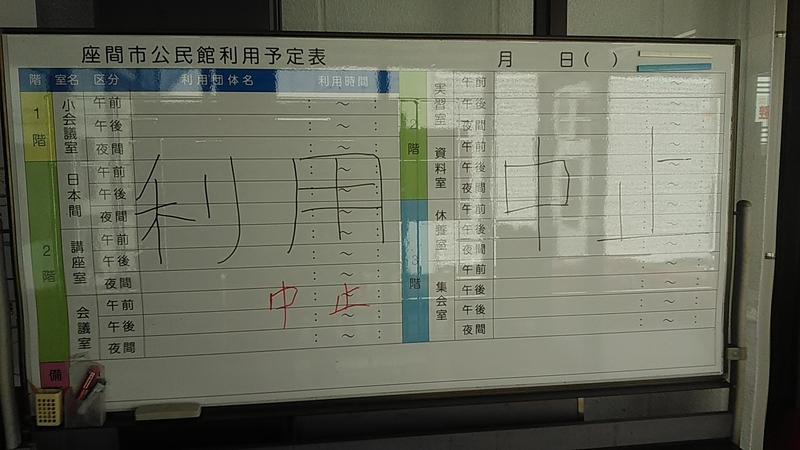 座間市公民館利用予定表 月 日( )
階 室名 区分 利用団体名 利用時間
1階 小会議室 午前 : ～ :
午後 : ～ :
夜間 : ～ :
2階 日本間 午前 : ～ :
午後 : ～ :
夜間 : ～ :
講座室 午前 : ～ :
午後 : ～ :
夜間 : ～ :
会議室 午前 : ～ :
午後 : ～ :
夜間 : ～ :
備
2階 実習室 午前 : ～ :
午後 : ～ :
夜間 : ～ :
資料室 午前 : ～ :
午後 : ～ :
夜間 : ～ :
3階 休養室 午前 : ～ :
午後 : ～ :
夜間 : ～ :
集会室 午前 : ～ :
午後 : ～ :
夜間 : ～ :
利用中止
中止